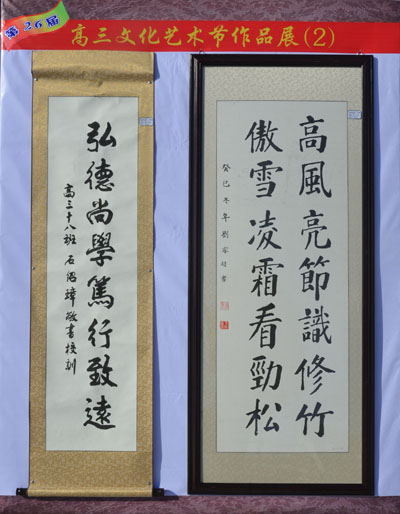 第26届
高三文化艺术节作品展(2)
弘德尚學篤行致遠
高三十八班 石 敬書校訓
高風亮節識修竹
傲雪凌霜看勁松
癸巳冬年劉